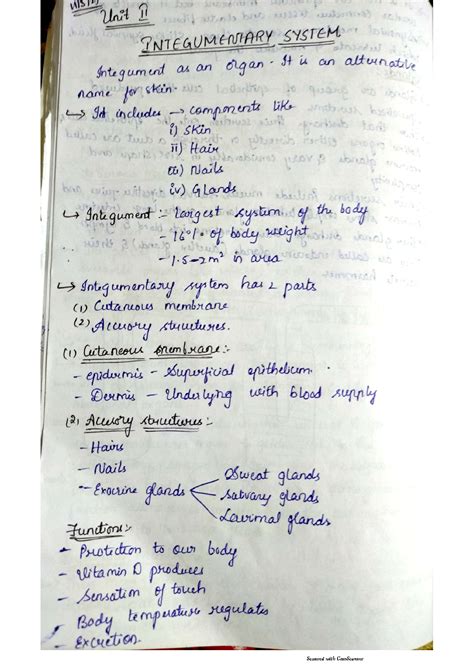 Unit II
INTEGUMENTARY SYSTEM
Integument as an organ - It is an alternative
name for skin.
↳ It includes → components like
i) Skin
ii) Hair
iii) Nails
iv) Glands
↳ Integument :- largest system of the body
- 16% of body weight
- 1.5-2m² in area
↳ Integumentary system has 2 parts
(1) Cutaneous membrane
(2) Accusory structures.
(1) Cutaneous membrane :-
- epidermis - Superficial epithelium.
- Dermis - Underlying with blood supply
(2) Accusory structures :-
- Hairs
- Nails
- Exocrine glands
Sweat glands
Salvary glands
Lacrimal glands
Functions :-
- Protection to our body
- Vitamin D produces
- Sensation of touch
- Body temperature regulates
- Excretion.
Scanned with CamScanner